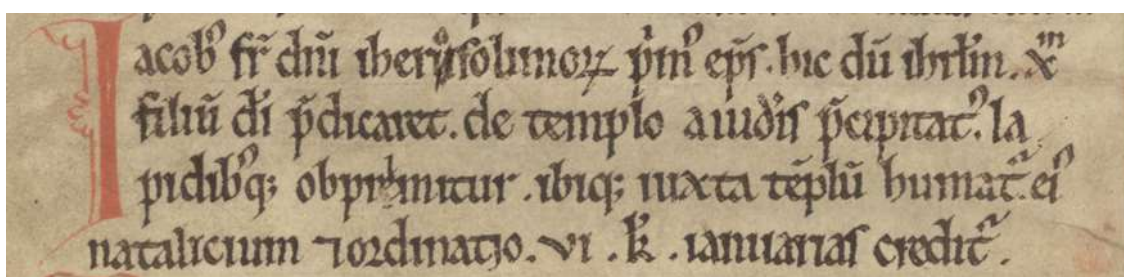 Iacobꝰ fr̄ dn̄i iherusolimoꝝ pͥmꝰ ep̄s. hic dū ihrl̄m. xp̄m
filiū dī p̄dicaret. de templo a iudeis p̄cipitatꝰ. la
pidibꝰqꝫ obprimitur. ibiqꝫ iuxta tēplū humatꝰ. eiꝰ
natalicium ⁊ ordinatio. vi. kł. ianuarias creditᷣ.